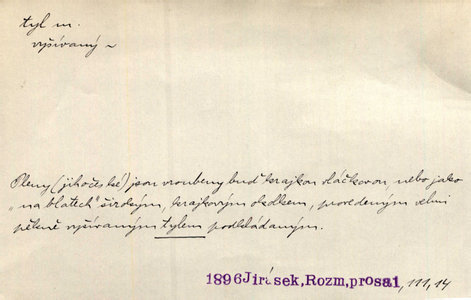 tyl m.
vyšívaný ~
Pleny (jihočeské) jsou vroubeny buď krajkou háčkovou, nebo jako
„na blatech" širokým, krajkovým okolkem, provedeným velmi
pěkně vyšívaným tylem podkládaným.
1896 Jirásek, Rozm, prosa1, 111, 14